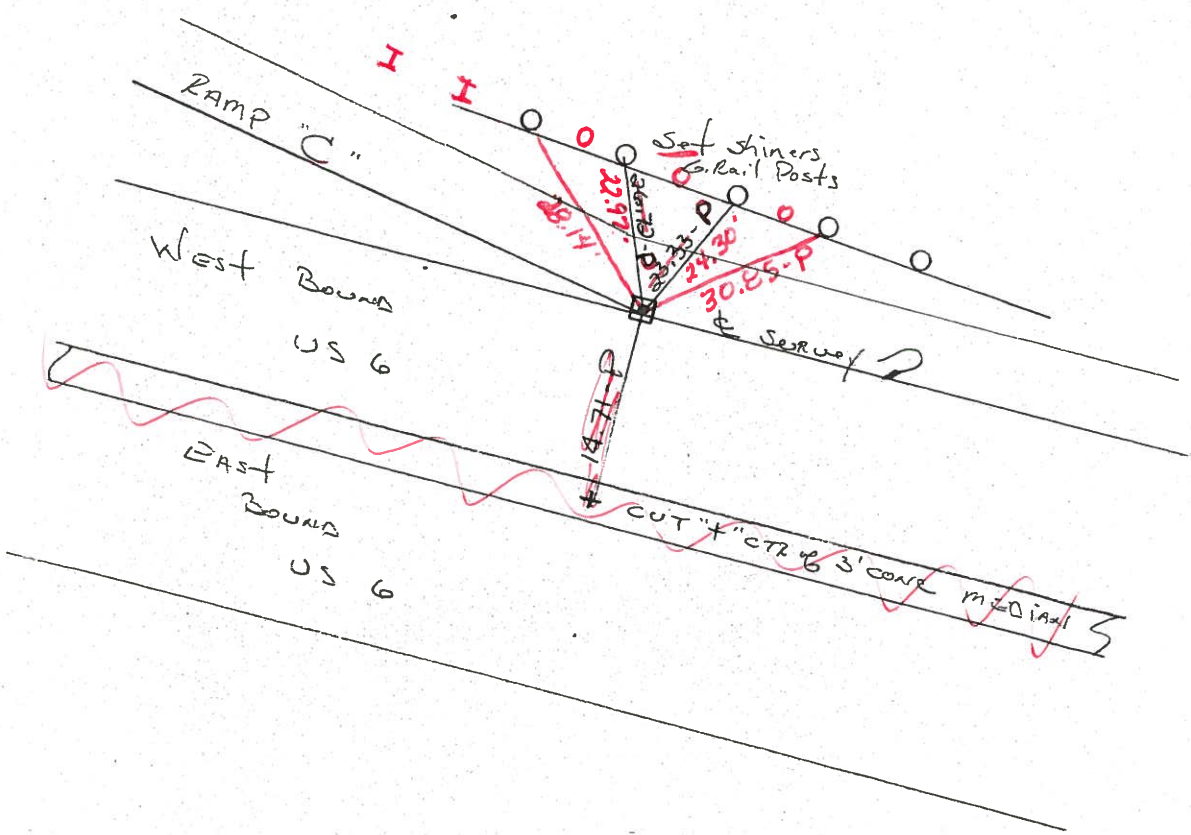 I
I
RAMP "C"
Set Shiners
G.Rail Posts
28.14'
22.97'
23.33-P
24.30'
30.85-P
℄ SURVEY
WEST
BOUND
US 6
18.71-P
EAST
BOUND
US 6
CUT "+" CTR of 3' CONC MEDIAN